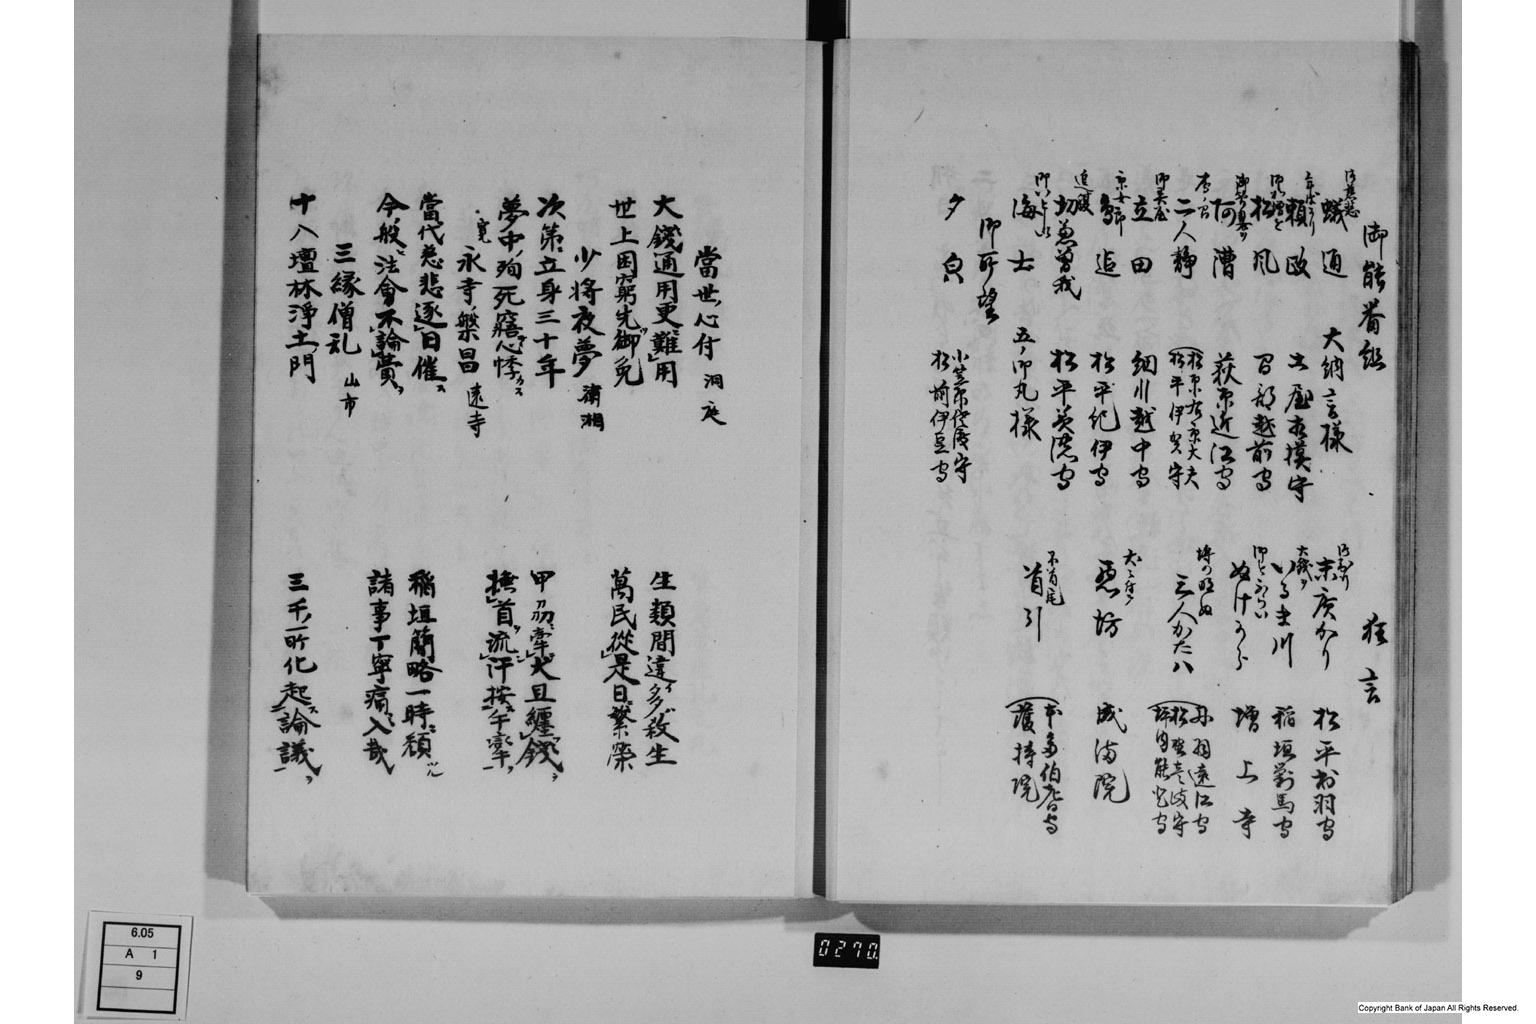 御能番組
蟻通 大納言様
頼政 土屋相模守
松風 間部越前守
阿漕 荻原近江守
二人静 松平右京大夫
松平伊賀守
立田 細川越中守
鳥追 松平紀伊守
切兼曽我 松平美濃守
海士 五ノ印丸様
御所望
夕㒵 小笠原佐渡守
松前伊豆守
狂言
末広かり 松平出羽守
いるま川 稲垣対馬守
ぬけから 増上寺
三人かたハ
悪坊 成満院
不首尾
首引 本多伯耆守
護持院
當世心付 洞庭
大錢通用更難用 生類間違多殺生
世上困窮先御免 萬民從是日繁榮
少将夜夢 瀟湘
次第立身三十年 甲刕牽犬且纒錢
夢中殉死寤心悸 撫首流汗按牛牽
寛永寺繁昌 遠寺
當代慈悲逐日催 稲垣簡略一時頽
今般法會不論費 諸事丁寧痛入哉
三縁僧乱 山市
十八壇林淨土門 三千所化起論議
6.05
A 1
9
0270.
Copyright Bank of Japan All Rights Reserved.